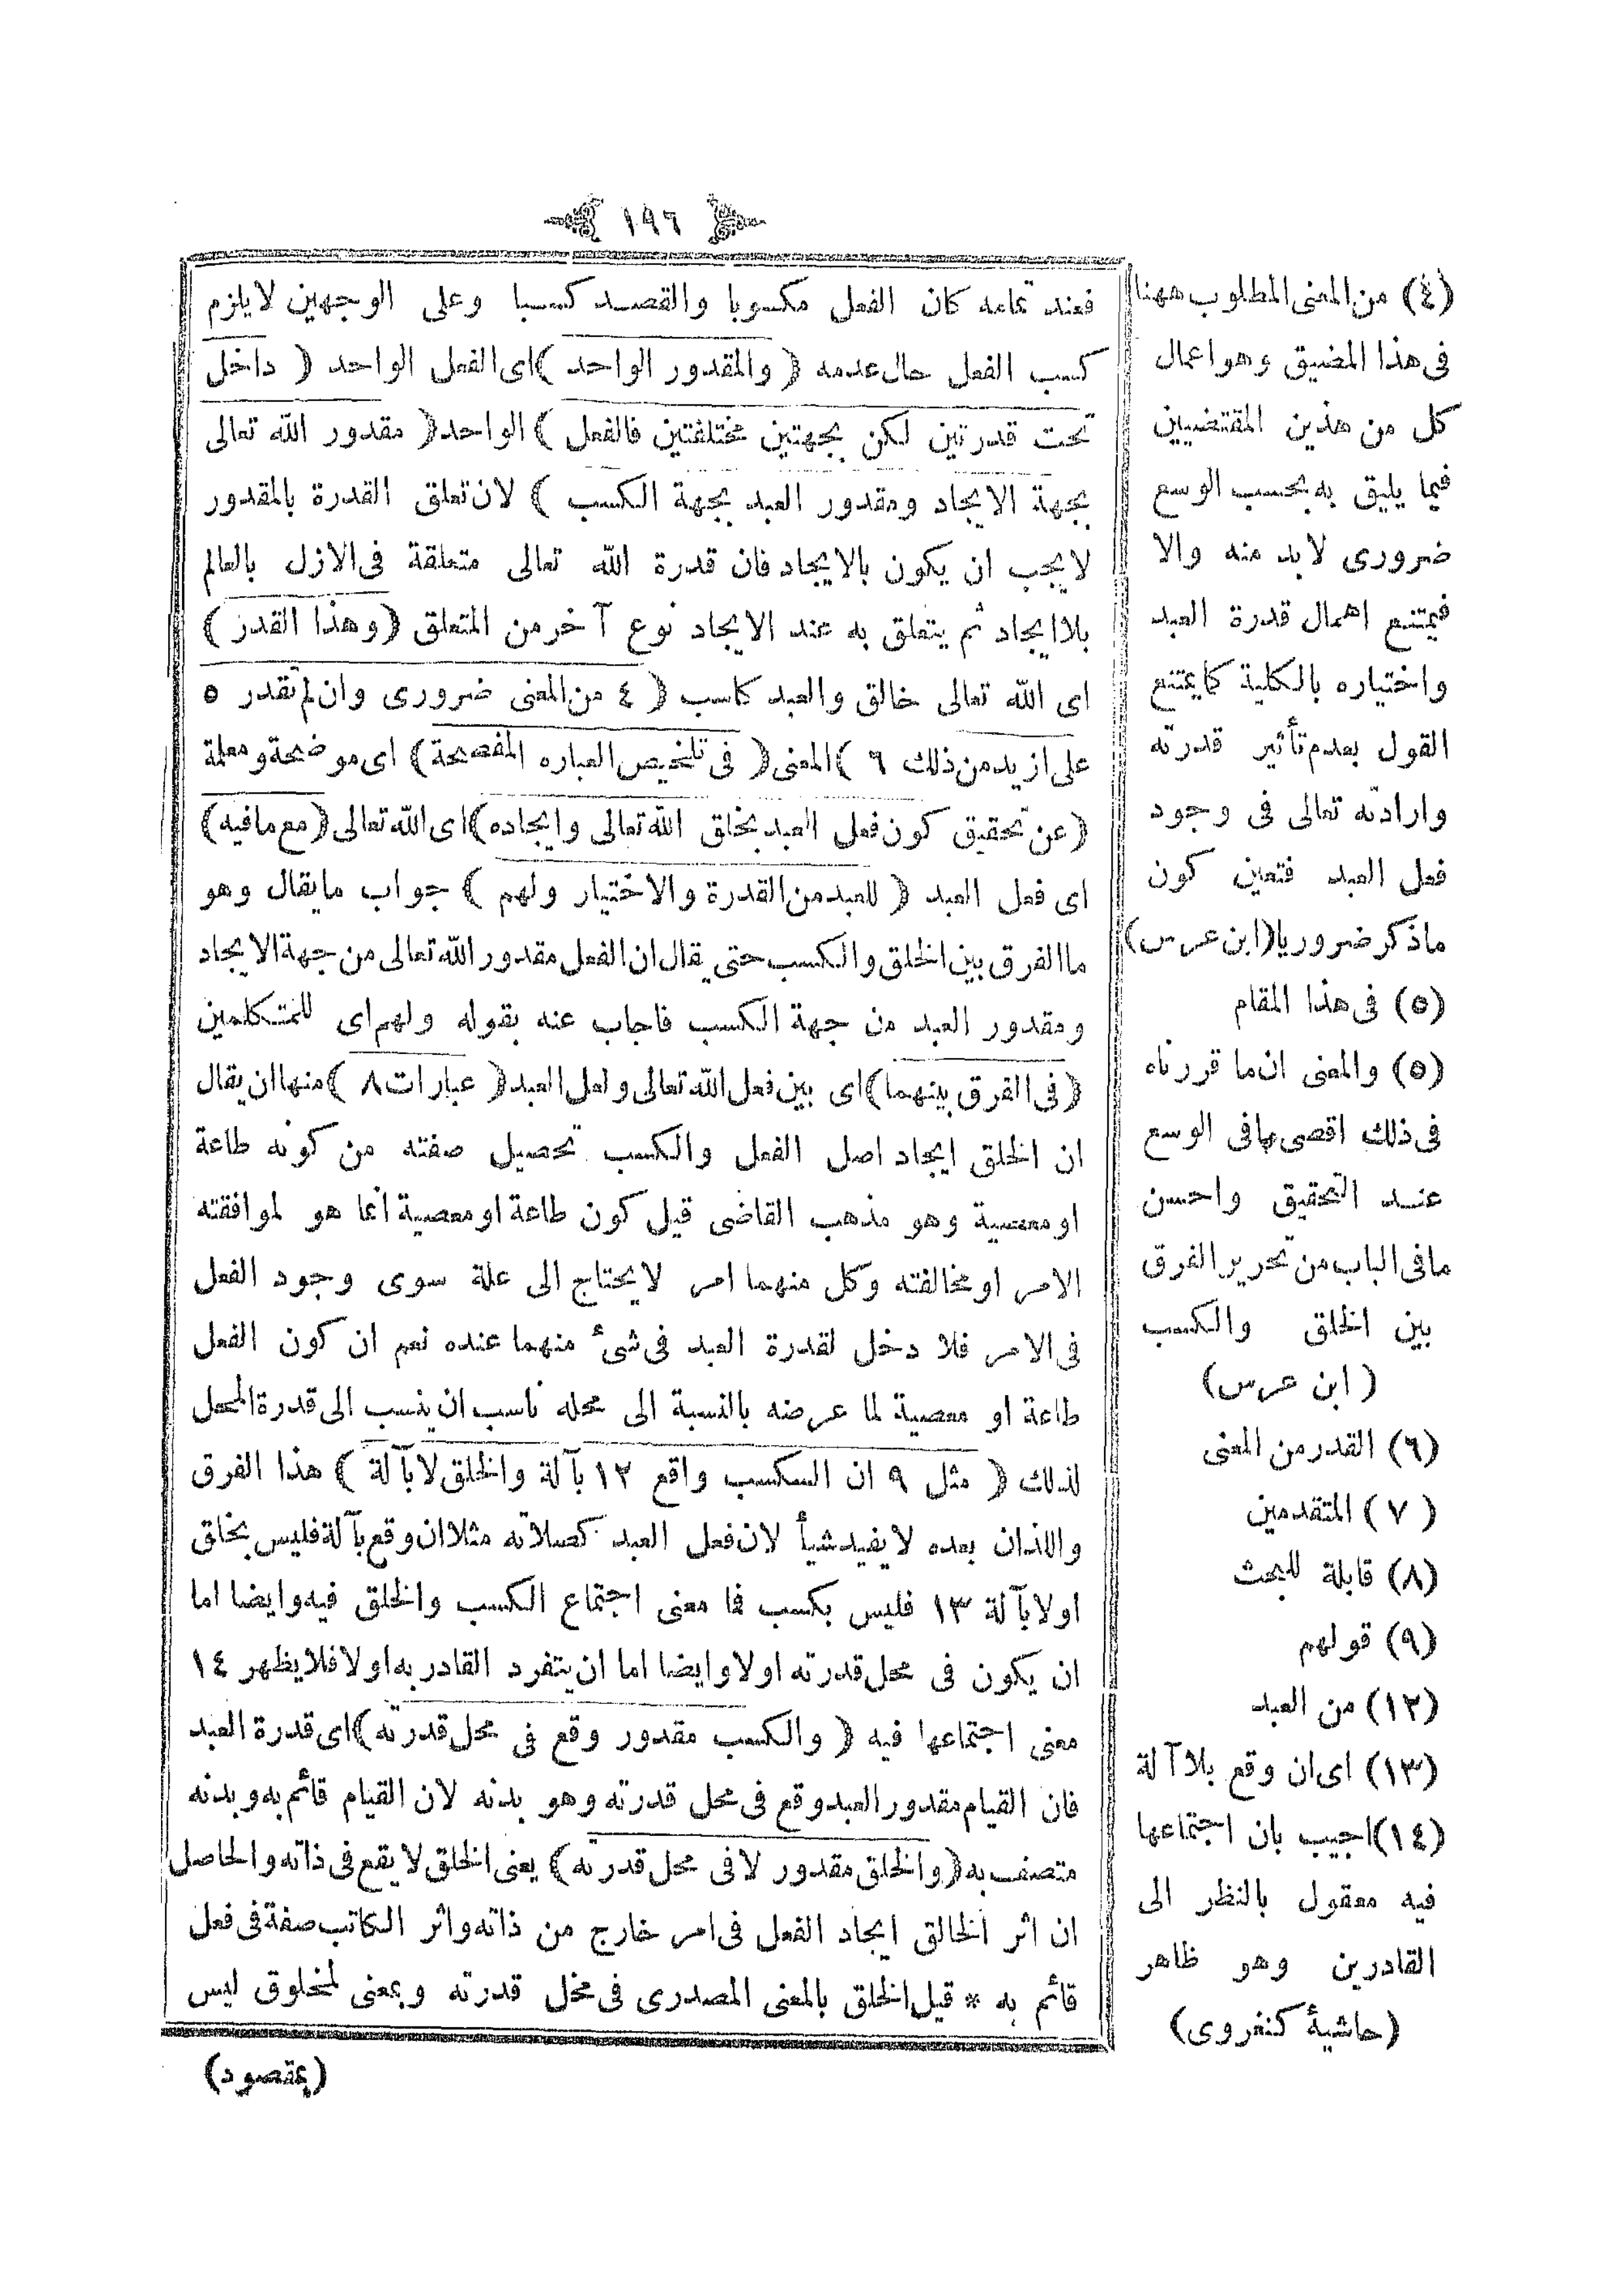 ١٩٦
فعند تمامه كان الفعل مكسوبا والقصد كسبا وعلى الوجهين لايلزم
كسب الفعل حال عدمه ( والمقدور الواحد ) اى الفعل الواحد ( داخل
تحت قدرتين لكن بجهتين مختلفتين فالفعل ) الواحد ( مقدور الله تعالى
بجهة الايجاد ومقدور العبد بجهة الكسب ) لان تعلق القدرة بالمقدور
لايجب ان يكون بالايجاد فان قدرة الله تعالى متعلقة فى الازل بالعالم
بلا ايجاد ثم يتعلق به عند الايجاد نوع آخر من المتعلق ( وهذا القدر )
اى الله تعالى خالق والعبد كاسب ( ٤ من المعنى ضرورى وان لم نقدر ٥
على ازيد من ذلك ٦ ) المعنى ( فى تلخيص العباره المفصحة ) اى موضحة ومعلمة
( عن تحقيق كون فعل العبد بخلق الله تعالى وايجاده ) اى الله تعالى ( مع مافيه )
اى فعل العبد ( للعبد من القدرة والاختيار ولهم ) جواب مايقال وهو
ماالفرق بين الخلق والكسب حتى يقال ان الفعل مقدور الله تعالى من جهة الايجاد
ومقدور العبد من جهة الكسب فاجاب عنه بقوله ولهم اى للمتكلمين
( فى الفرق بينهما ) اى بين فعل الله تعالى ولعل العبد ( عبارات ٨ ) منها ان يقال
ان الخلق ايجاد اصل الفعل والكسب تحصيل صفته من كونه طاعة
او معصية وهو مذهب القاضى قيل كون طاعة او معصية انما هو لموافقته
الامر او مخالفته وكل منهما امر لايحتاج الى علة سوى وجود الفعل
فى الامر فلا دخل لقدرة العبد فى شئ منهما عنده نعم ان كون الفعل
طاعة او معصية لما عرضه بالنسبة الى محله ناسب ان ينسب الى قدرة المحل
لذلك ( مثل ٩ ان الكسب واقع ١٢ بآلة والخلق لابآلة ) هذا الفرق
واللذان بعده لايفيد شيأ لان فعل العبد كصلاته مثلا ان وقع بآلة فليس بخلق
اولا بآلة ١٣ فليس بكسب فما معنى اجتماع الكسب والخلق فيه وايضا اما
ان يكون فى محل قدرته اولا وايضا اما ان يتفرد القادر به اولا فلا يظهر ١٤
معنى اجتماعها فيه ( والكسب مقدور وقع فى محل قدرته ) اى قدرة العبد
فان القيام مقدور العبد وقع فى محل قدرته وهو بدنه لان القيام قائم به وبدنه
متصف به ( والخلق مقدور لا فى محل قدرته ) يعنى الخلق لايقع فى ذاته والحاصل
ان اثر الخالق ايجاد الفعل فى امر خارج من ذاته واثر الكاتب صفة فى فعل
قائم به * قيل الخلق بالمعنى المصدرى فى محل قدرته وبمعنى لمخلوق ليس
( بمقصود )
(٤) من المعنى المطلوب ههنا
فى هذا المضيق وهو اعمال
كل من هذين المقتضيين
فيما يليق به بحسب الوسع
ضرورى لابد منه والا
فيمتنع اهمال قدرة العبد
واختياره بالكلية كما يمتنع
القول بعدم تأثير قدرته
وارادته تعالى فى وجود
فعل العبد فتعين كون
ماذكر ضروريا (ابن عرس)
(٥) فى هذا المقام
(٥) والمعنى ان ما قررناه
فى ذلك اقصى مافى الوسع
عند التحقيق واحسن
مافى الباب من تحرير الفرق
بين الخلق والكسب
( ابن عرس)
(٦) القدر من المعنى
(٧) المتقدمين
(٨) قابلة للبحث
(٩) قولهم
(١٢) من العبد
(١٣) اى ان وقع بلا آلة
(١٤) اجيب بان اجتماعها
فيه معقول بالنظر الى
القادرين وهو ظاهر
(حاشيۀ كنغروى)